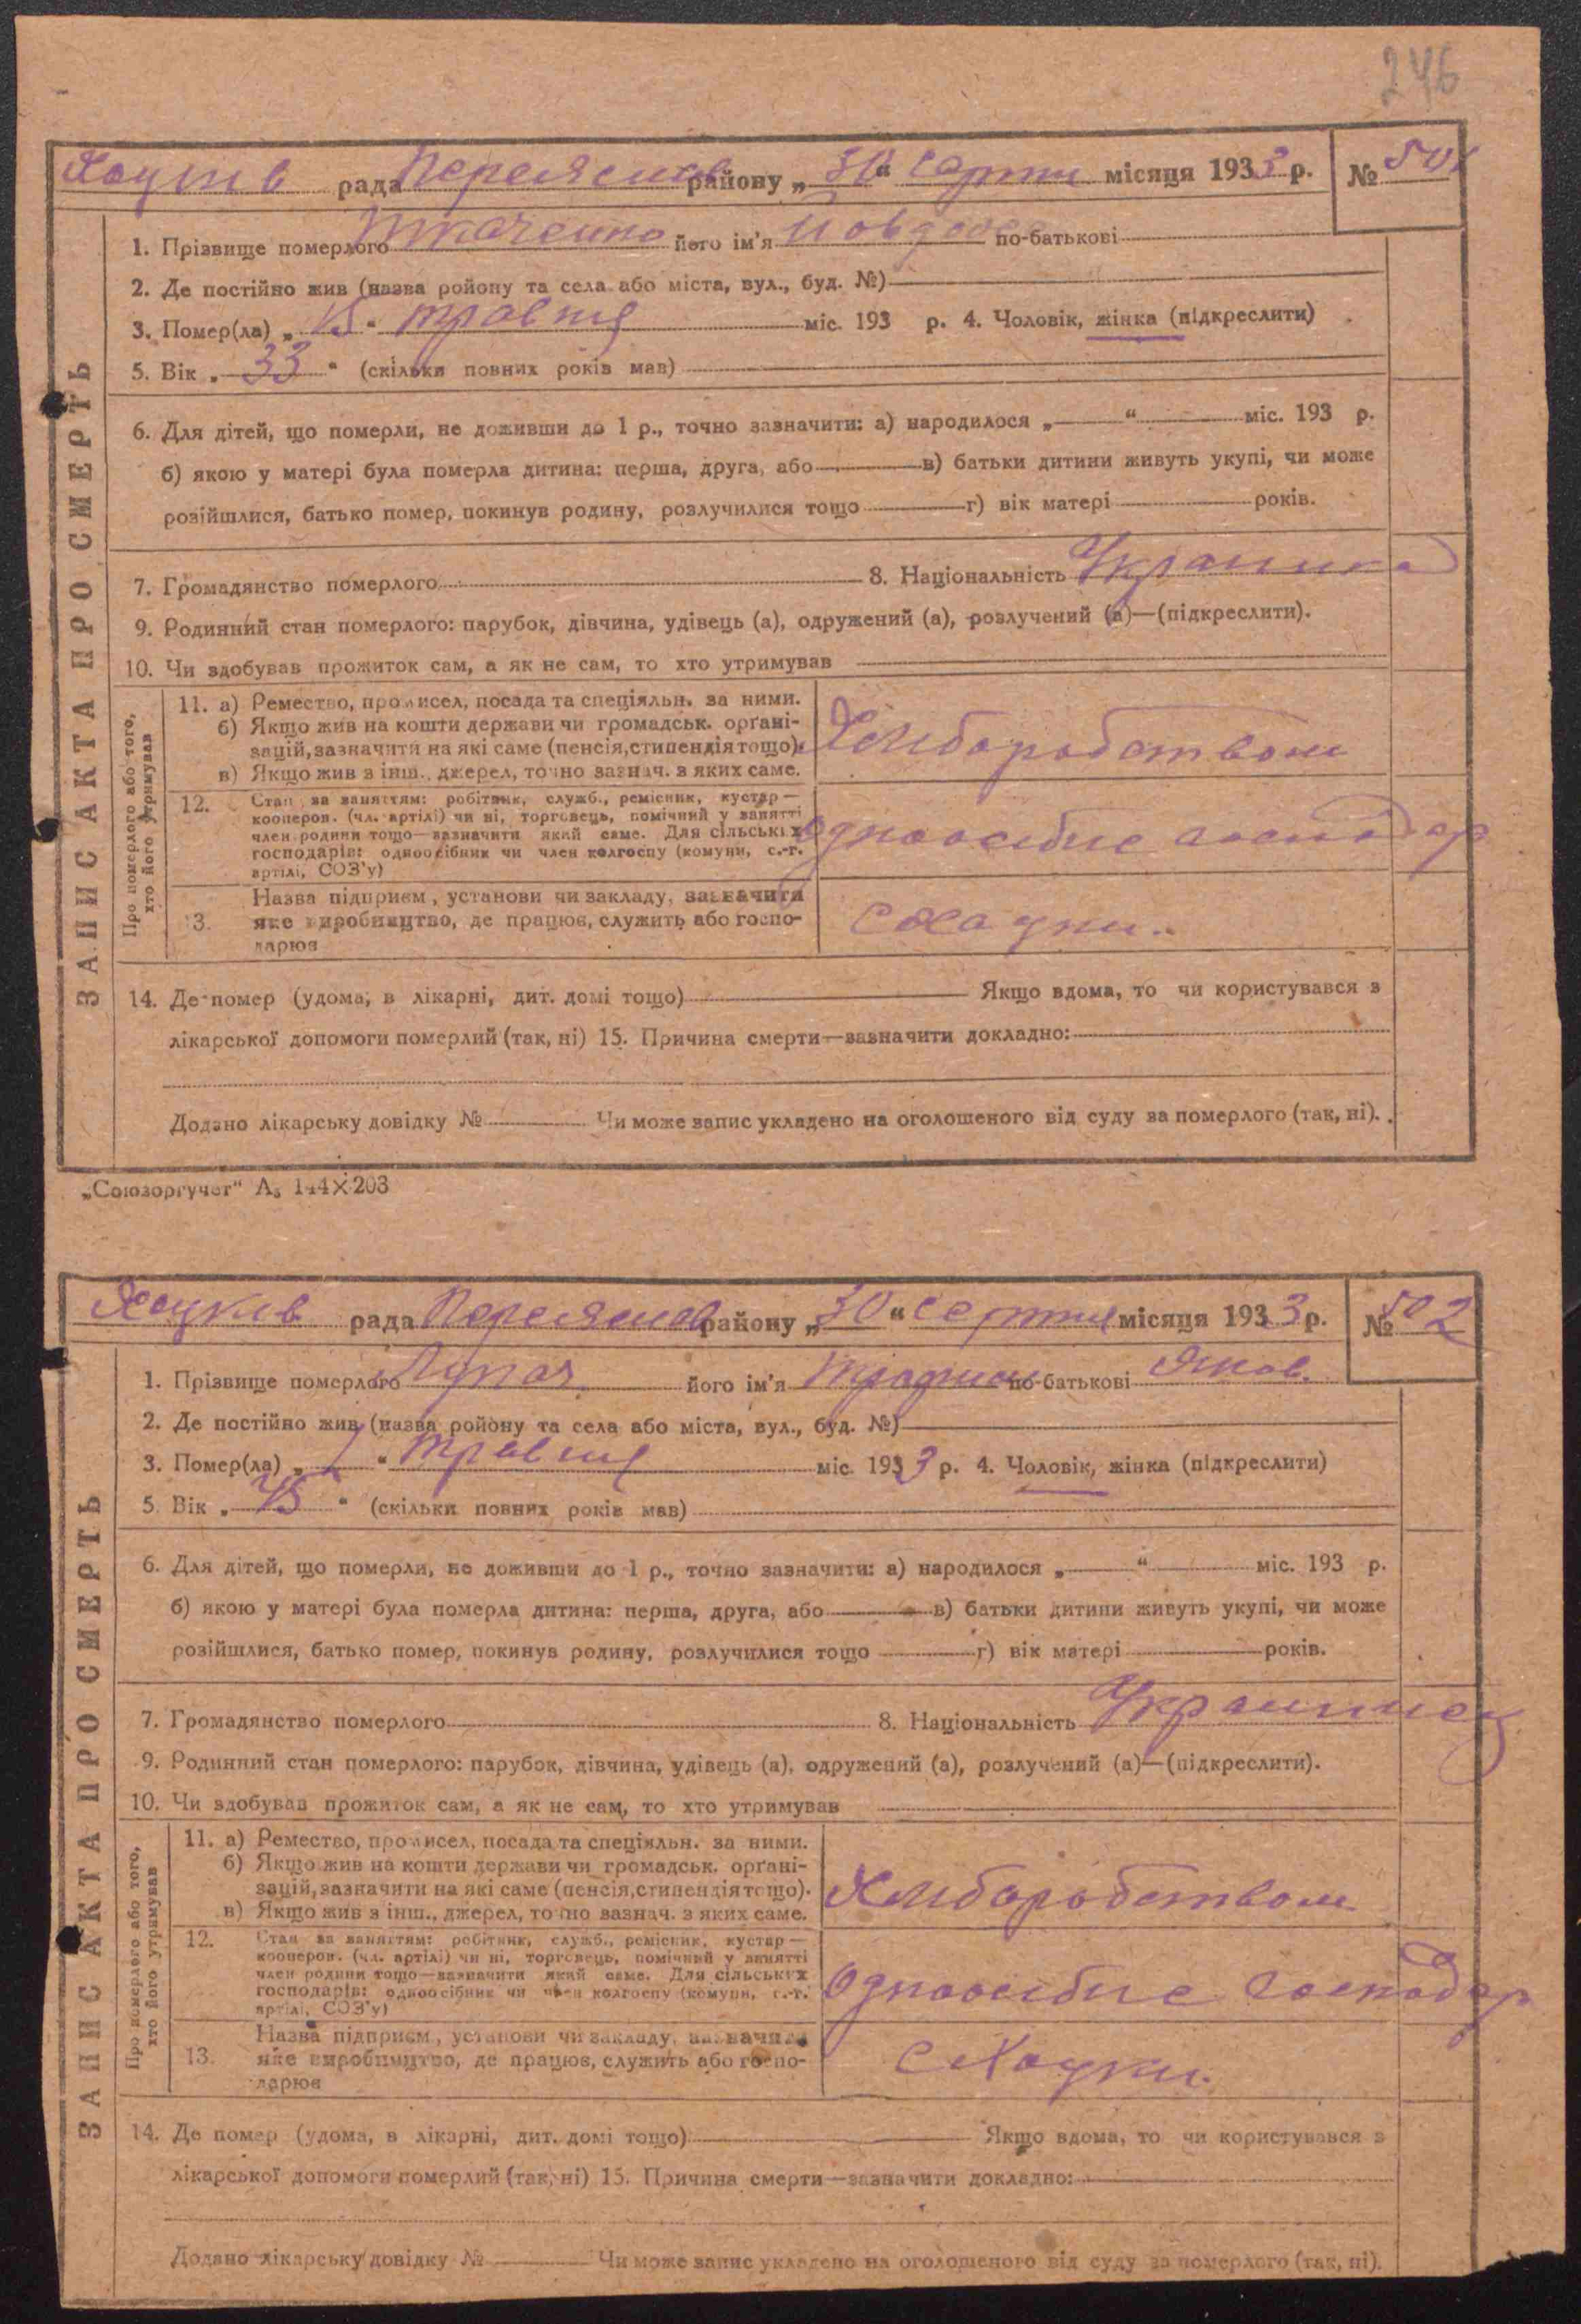 246
Хоцків рада Переяслав району „30“ серпня місяця 1933 р. № 501
1. Прізвище померлого Ткаченко його ім'я по-батькові
2. Де постійно жив (назва ройону та села або міста, вул., буд. №)
3. Помер(ла) „15“ травня міс. 193 р. 4. Чоловік, жінка (підкреслити)
5. Вік „33“ (скільки повних років мав)
6. Для дітей, що померли, не доживши до 1 р., точно зазначити: а) народилося „ “ міс. 193 р.
б) якою у матері була померла дитина: перша, друга, або в) батьки дитини живуть укупі, чи може
розійшлися, батько помер, покинув родину, розлучилися тощо г) вік матері років.
7. Громадянство померлого 8. Національність Украинка
9. Родинний стан померлого: парубок, дівчина, удівець (а), одружений (а), розлучений (а)—(підкреслити).
10. Чи здобував прожиток сам, а як не сам, то хто утримував
Про померлого або того, хто його утримував
11. а) Ремество, промисел, посада та спеціяльн. за ними.
б) Якщо жив на кошти держави чи громадськ. орґані-
зацій, зазначити на які саме (пенсія, стипендія тощо).
в) Якщо жив з інш., джерел, точно зазнач. з яких саме.
Хліборобством
12. Стан за заняттям: робітник, служб., ремісник, кустар—
кооперов. (чл. артілі) чи ні, торговець, помічний у занятті
член родини тощо—зазначити який саме. Для сільських
господарів: одноосібник чи член колгоспу (комуни, с.-г.
артілі, СОЗ'у)
Одноосібне господар
13. Назва підприєм., установи чи закладу, зазначити
яке виробництво, де працює, служить або госпо-
дарює
с Хоцки.
14. Де помер (удома, в лікарні, дит. домі тощо) Якщо вдома, то чи користувався з
лікарської допомоги померлий (так, ні) 15. Причина смерти—зазначити докладно:
Додано лікарську довідку № Чи може запис укладено на оголошеного від суду за померлого (так, ні).
ЗАПИС АКТА ПРО СМЕРТЬ
„Союзоргучет“ А₅ 144×203
Хоцків рада Переяслав району „30“ серпня місяця 1933 р. № 502
1. Прізвище померлого Лупач його ім'я по-батькові Яков.
2. Де постійно жив (назва ройону та села або міста, вул., буд. №)
3. Помер(ла) „1“ травня міс. 1933 р. 4. Чоловік, жінка (підкреслити)
5. Вік „45“ (скільки повних років мав)
6. Для дітей, що померли, не доживши до 1 р., точно зазначити: а) народилося „ “ міс. 193 р.
б) якою у матері була померла дитина: перша, друга, або в) батьки дитини живуть укупі, чи може
розійшлися, батько помер, покинув родину, розлучилися тощо г) вік матері років.
7. Громадянство померлого 8. Національність Украинец
9. Родинний стан померлого: парубок, дівчина, удівець (а), одружений (а), розлучений (а)—(підкреслити).
10. Чи здобував прожиток сам, а як не сам, то хто утримував
Про померлого або того, хто його утримував
11. а) Ремество, промисел, посада та спеціяльн. за ними.
б) Якщо жив на кошти держави чи громадськ. орґані-
зацій, зазначити на які саме (пенсія, стипендія тощо).
в) Якщо жив з інш., джерел, точно зазнач. з яких саме.
Хліборобством
12. Стан за заняттям: робітник, служб., ремісник, кустар—
кооперов. (чл. артілі) чи ні, торговець, помічний у занятті
член родини тощо—зазначити який саме. Для сільських
господарів: одноосібник чи член колгоспу (комуни, с.-г.
артілі, СОЗ'у)
Одноосібне господар
13. Назва підприєм., установи чи закладу, зазначити
яке виробництво, де працює, служить або госпо-
дарює
с Хоцки.
14. Де помер (удома, в лікарні, дит. домі тощо) Якщо вдома, то чи користувався з
лікарської допомоги померлий (так, ні) 15. Причина смерти—зазначити докладно:
Додано лікарську довідку № Чи може запис укладено на оголошеного від суду за померлого (так, ні).
ЗАПИС АКТА ПРО СМЕРТЬ